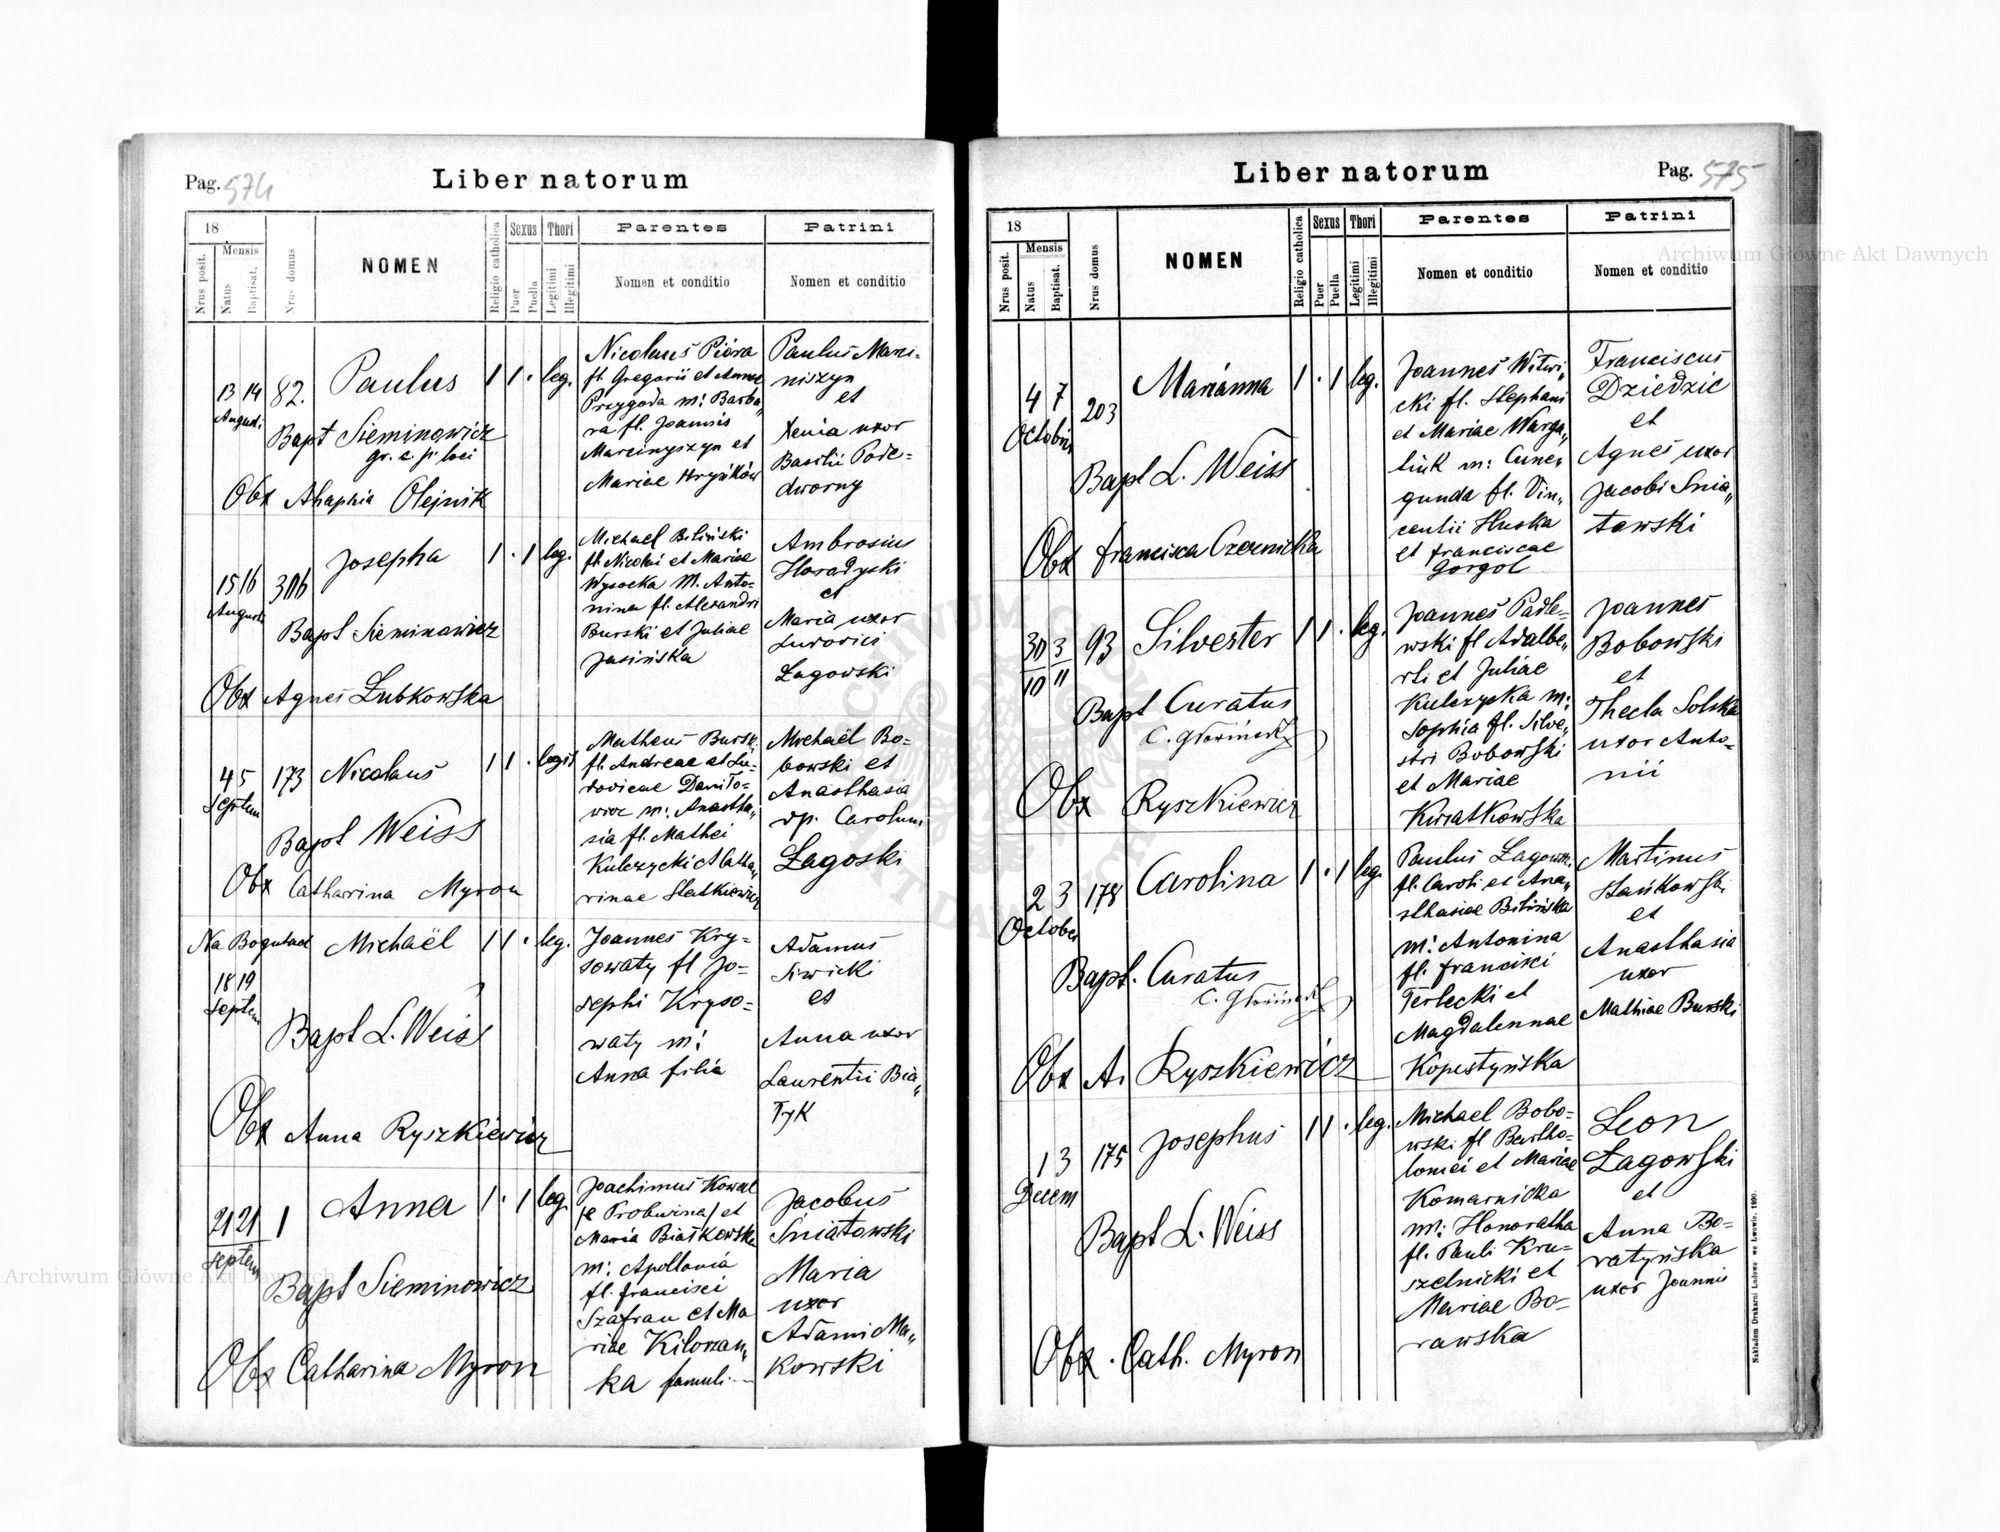 Pag. 574
Liber natorum
18
Nrus posit.
Mensis
Natus
Baptisat.
Nrus domus
NOMEN
Religio catholica
Sexus
Puer
Puella
Thori
Legitimi
Illegitimi
Parentes
Nomen et conditio
Patrini
Nomen et conditio
13 14
Augusti
82.
Paulus
1 1 . leg.
Bapt Sieminowicz
gr. c. p. loci
Obx Ahaphia Olejnik
Nicolaus Pióra
fl. Gregorii et Annae
Przygoda m: Barba„
ra fl. Joannis
Marcinyszyn et
Mariae Hryńków
Paulus Marci-
niszyn
et
Xenia uxor
Basilii Pode-
dworny
15 16
Augusti
306
Josepha
1 . 1 leg.
Bapt Sieminowicz
Obx Agnes Łubkowska
Michael Biliński
fl. Nicolai et Mariae
Wysocka m. Anto-
nina fl. Alexandri
Burski et Juliae
Jasińska
Ambrosius
Horadyski
et
Maria uxor
Ludovici
Łagowski
4 5
Septem
173
Nicolaus
1 1 . legit
Bapt Weiss
Obx Catharina Myron
Matheus Bursk
fl. Andreae et Lu-
dovicae Daniło-
wicz m: Anastha„
sia fl. Mathei
Kulczycki et Catha„
rinae Slatkiewicz
Michaël Bo-
bowski et
Anasthasia
vp. Carolum
Łagoski
Na
Michaël
1 1 . leg.
18 19
Septem
Bapt L. Weiss
Obx Anna Ryszkiewicz
Joannes Kry-
sowaty fl Jo-
sephi Kryso-
waty m:
Anna filia
Adamus
Siwicki
et
Anna uxor
Laurentii Bia„
łyk
21 21
Septem
1
Anna
1 . 1 leg.
Bapt Sieminowicz
Obx Catharina Myron
Joachimus Kowal
/e Probuzina/ et
Maria Białkowska
m: Apollonia
fl. francisci
Szafran et Ma
riae
ka famuli
Jacobus
Śniatowski
Maria
uxor
Adami Ma„
kowski
Pag. 575
Liber natorum
18
Nrus posit.
Mensis
Natus
Baptisat.
Nrus domus
NOMEN
Religio catholica
Sexus
Puer
Puella
Thori
Legitimi
Illegitimi
Parentes
Nomen et conditio
Patrini
Nomen et conditio
4 7
Octobris
203
Mariánna
1 . 1 leg.
Bapt L. Weiss
Obx francisca Czernicka
Joannes Witwi„
cki fl. Stephani
et Mariae Warga„
link m: Cune„
gunda fl. Vin„
centii Huska
et franciscae
Gorgol
Franciscus
Dziedzic
et
Agnes uxor
Jacobi Snia„
towski
30 3
10 11
93
Silvester
1 1 . leg.
Bapt Curatus
Obx Ryszkiewicz
Joannes Padle-
wski fl Adalbe„
rti et Juliae
Kulczycka m:
Sophia fl. Silve„
stri Bobowski
et Mariae
Kwiatkowska
Joannes
Bobowski
et
Thecla Solska
uxor Anto-
nii
2 3
October
178
Carolina
1 . 1 leg.
Bapt. Curatus
Obx A. Ryszkiewicz
Paulus Łagowski
fl. Caroli et Ana„
sthasiae Bilińska
m: Antonina
fl. francisci
Terlecki et
Magdalennae
Kopestyńska
Martinus
Stańkowski
et
Anasthasia
uxor
Mathiae Burski
1 3
Decem
175
Josephus
1 1 . leg.
Bapt L. Weiss
Obx . Cath. Myron
Michael Bobo-
wski fl Bartho-
lomei et Mariae
Komarnicka
m: Honoratha
fl. Pauli Kru-
szelnicki et
Mariae Bo-
rawska
Leon
Łagowski
et
Anna Bo-
ratyńska
uxor Joannis
Nakładem Drukarni Ludowej we Lwowie. 1890.
Archiwum Główne Akt Dawnych
Archiwum Główne Akt Dawnych
ARCHIWUM GŁÓWNE AKT DAWNYCH